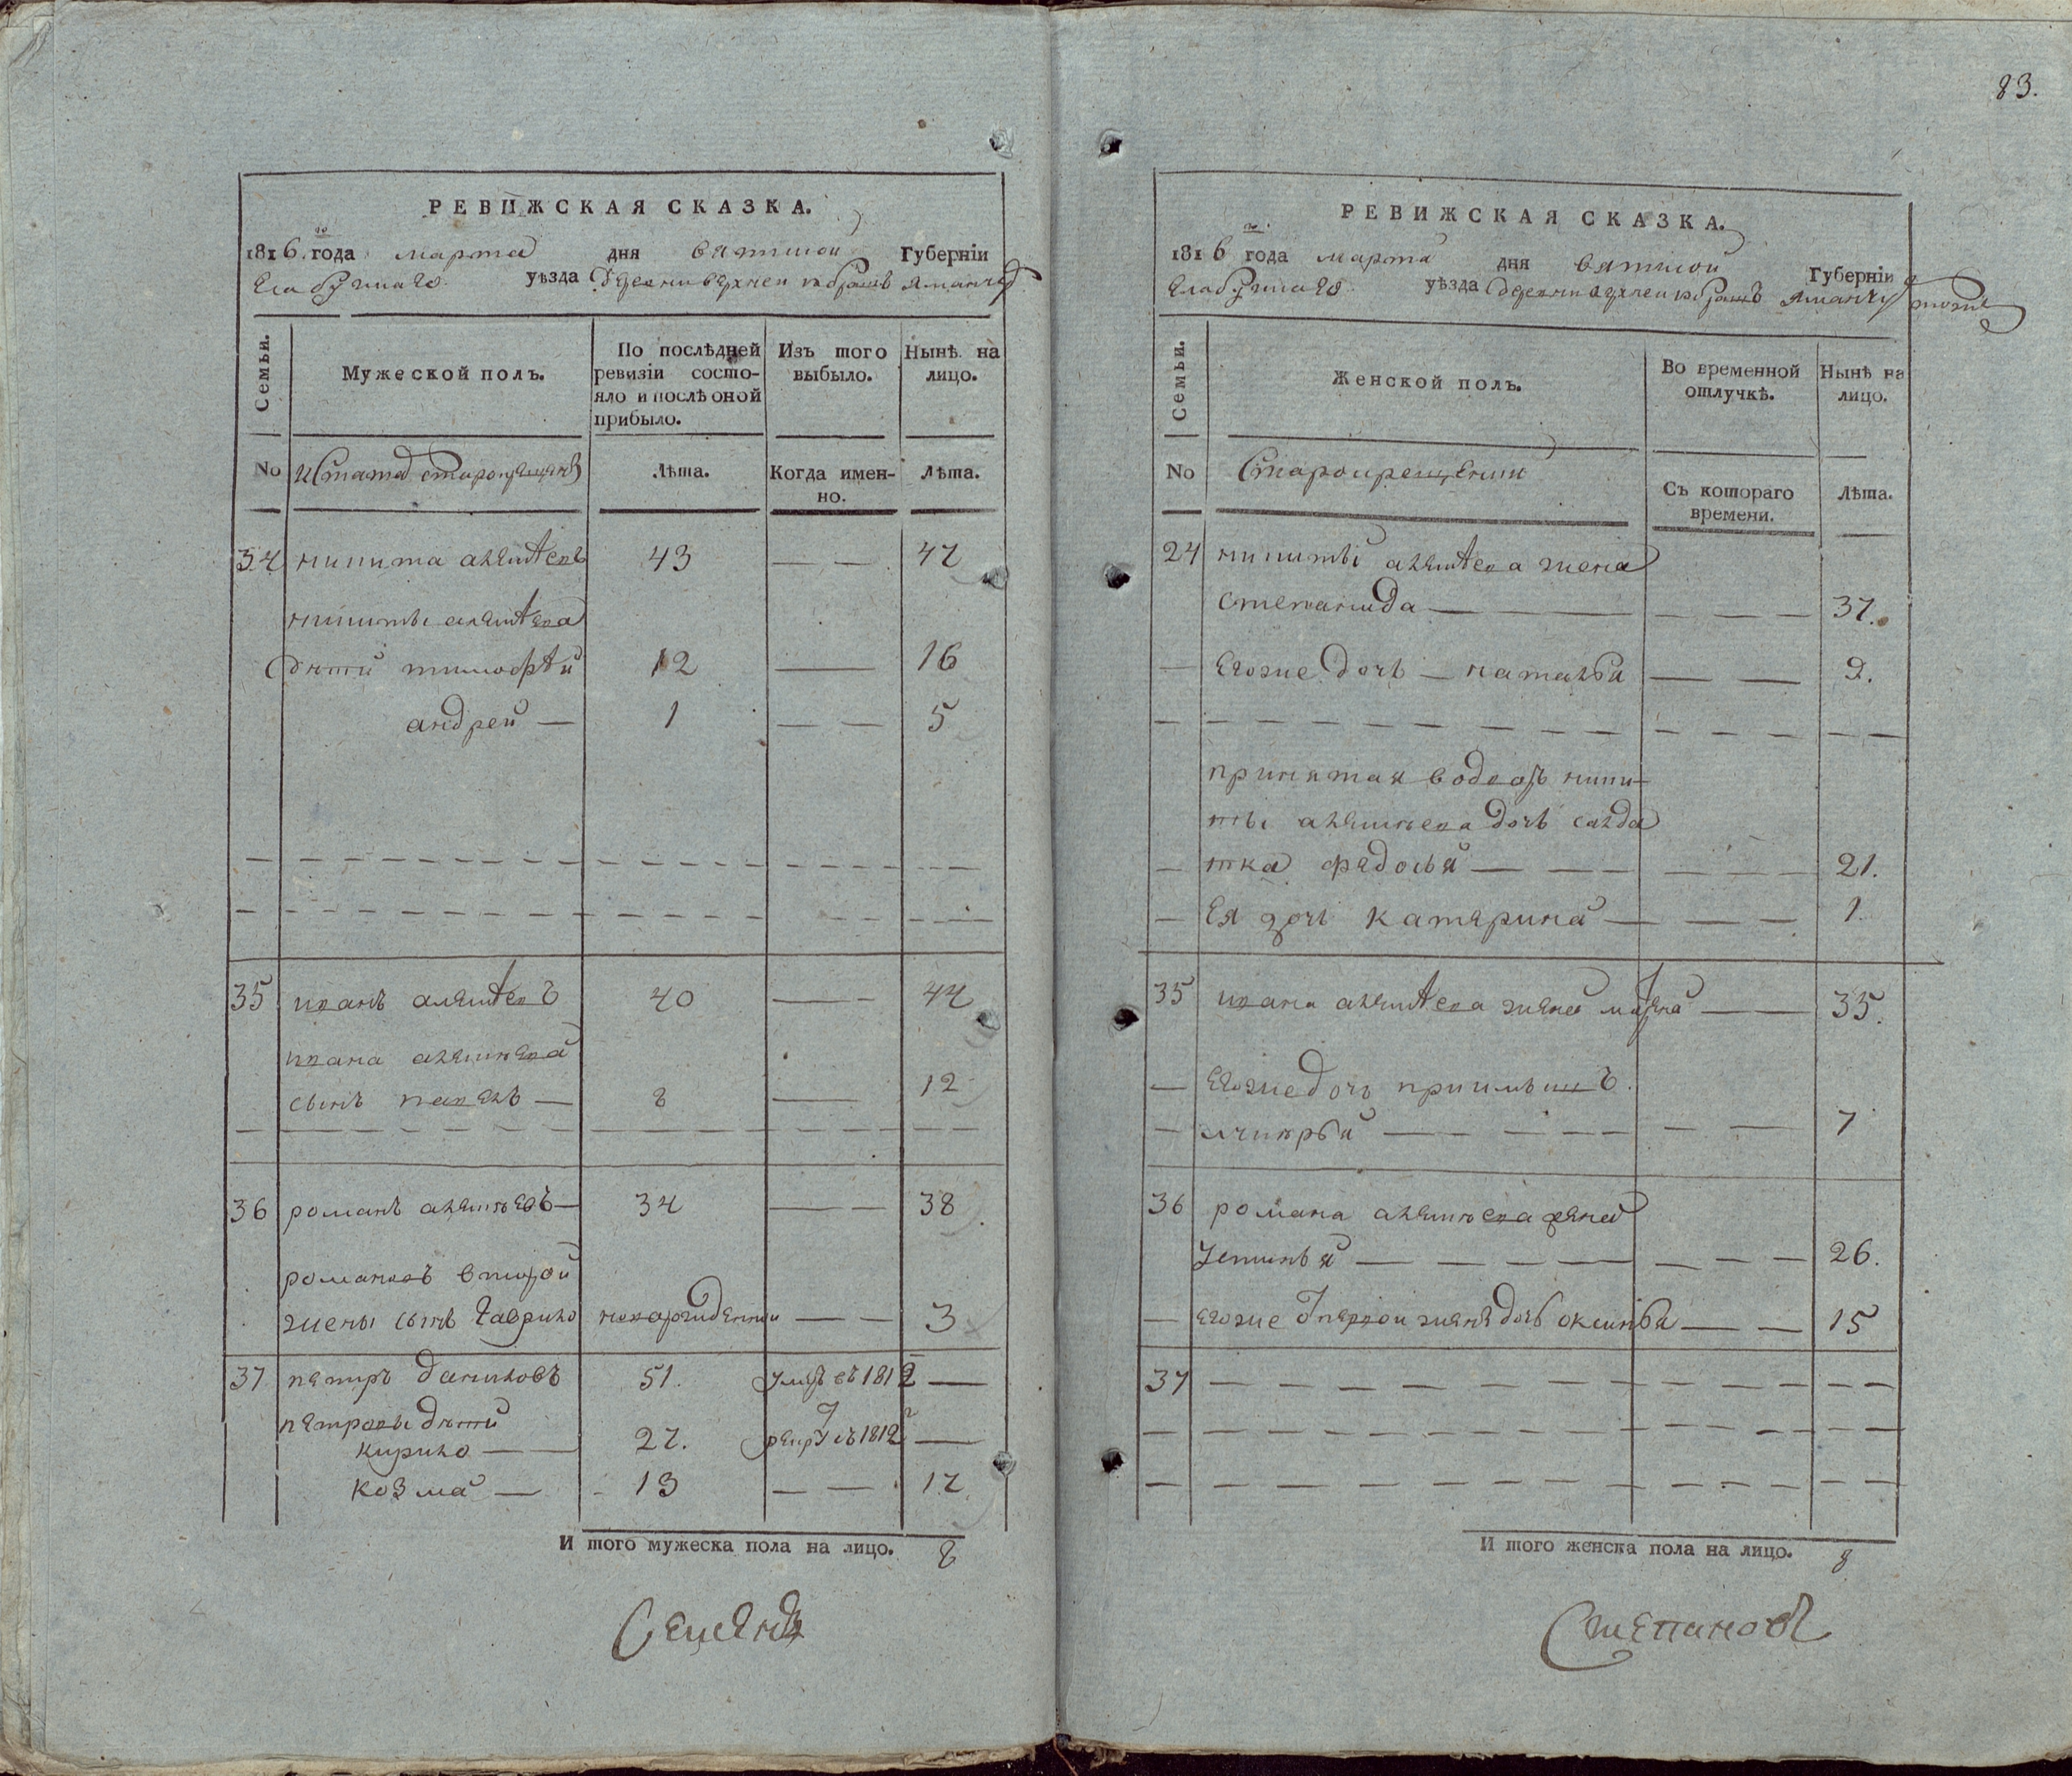 РЕВИЖСКАЯ СКАЗКА.
1816 года марта дня вятской Губерніи
Елабужскаго уѣзда Деревни верхней
Семьи. Мужеской полъ. По послѣдней ревизіи состояло и послѣ оной прибыло. Изъ того выбыло. Нынѣ на лицо.
No Лѣта. Когда именно. Лѣта.
34 никита алеѯѣевъ 43 — — 47
никиты алеѯѣева
дѣти тимофѣй 12 — 16
андрей — 1 — — 5
35 иванъ алеѯѣевъ 40 — 44
ивана алеѯѣева
сынъ павелъ — 8 — 12
36 романъ алеѯѣевъ — 34 — — 38
романовъ второй
жены сынъ Гаврило новорожденный — — 3
37 петръ Даниловъ 51. умръ въ 1812 —
петровы дѣти
кирило — 27. рекру въ 1812 —
козма — 13 — — 17
И того мужеска пола на лицо. 8
Семенъ
83.
РЕВИЖСКАЯ СКАЗКА.
1816 года марта дня вятской Губерніи
Елабужскаго уѣзда деревни верхней
Семьи. Женской полъ. Во временной отлучкѣ. Нынѣ на лицо.
No Старокрещеныи Съ котораго времени. Лѣта.
24 никиты алеѯѣева жена
степанида — — — 37.
— Егоже дочь — наталья — — 9.
принятая вдомъ ники
ты алеѯѣева дочь салда
тка федосья — — — 21.
— Ея дочь катерина — — 1
35 ивана алеѯѣева жена — 35.
— Егоже дочь
— — — 7
36 романа алеѯѣева жена
устинья — — — 26.
— егоже Отпервой жены дочь оксинья — — 15
37 — — —
И того женска пола на лицо. 8
Степановъ